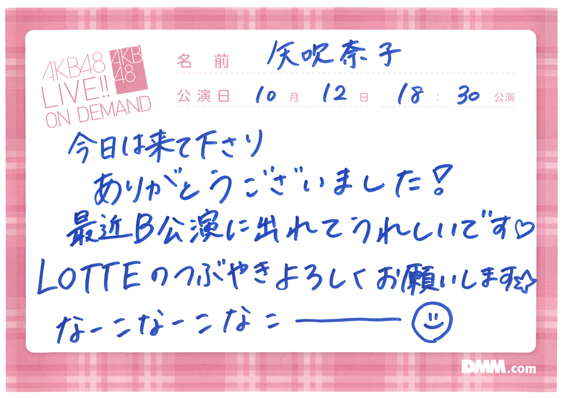 AKB48
LIVE!!
ON DEMAND
AKB
48
名前 矢吹奈子
公演日 10月 12日 18:30 公演
今日は来て下さり
ありがとうございました!
最近B公演に出れてうれしいです♡
LOTTEのつぶやきよろしくお願いします☆
なーこなーこなこ———☺
DMM.com